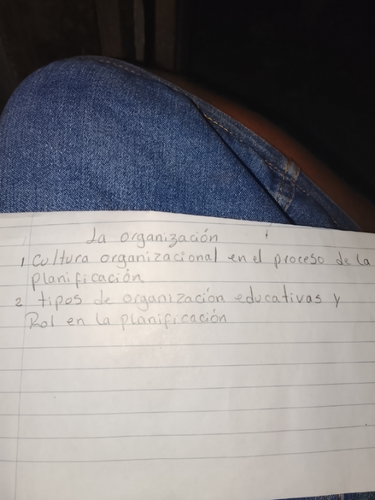 La organización
1 Cultura organizacional en el proceso de la
planificación
2 tipos de organización educativas y
Rol en la planificación